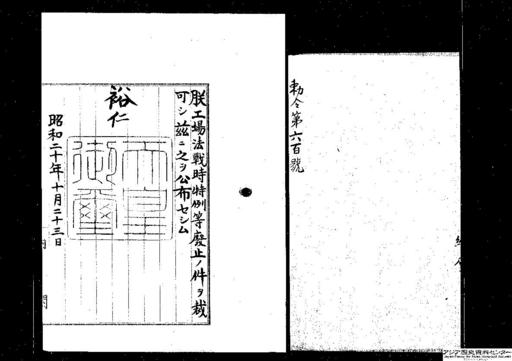 勅令第六百號
朕工場法戰時特例等廢止ノ件ヲ裁
可シ茲ニ之ヲ公布セシム
裕仁
天皇
御璽
昭和二十年十月二十三日
アジア歴史資料センター